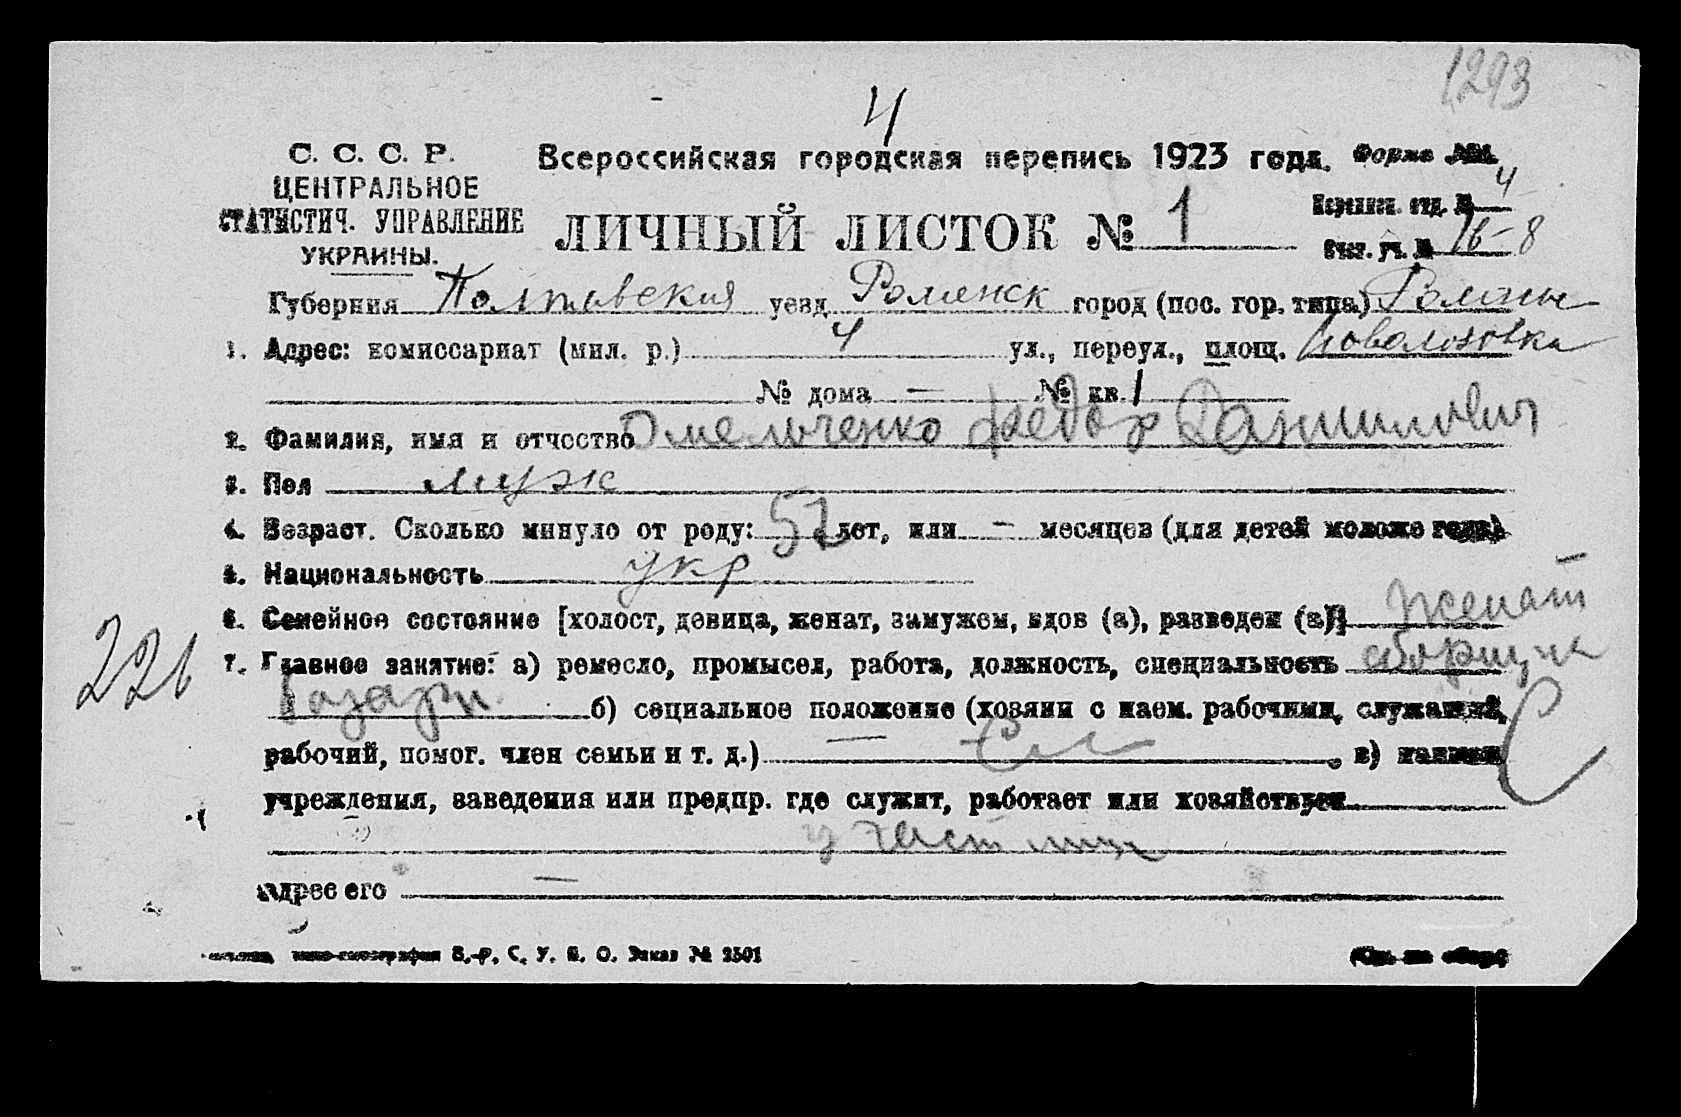 1293
4
С. С. С. Р. Всероссийская городская перепись 1923 года. Форма №1.
ЦЕНТРАЛЬНОЕ
СТАТИСТИЧ. УПРАВЛЕНИЕ
УКРАИНЫ.
ЛИЧНЫЙ ЛИСТОК № 1
отд. № 4
Счет. уч. № 16-8
Губерния Полтавская уезд Роменск город (пос. гор. типа) Ромны
1. Адрес: комиссариат (мил. р.) 4 ул., переул., площ.
№ дома — № кв. 1
2. Фамилия, имя и отчество Омельченко Федор Данилович
3. Пол муж
4. Возраст. Сколько минуло от роду: 52 лет, или — месяцев (для детей моложе года)
5. Национальность укр
6. Семейное состояние [холост, девица, женат, замужем, вдов (а), разведен (а)] женат
7. Главное занятие: а) ремесло, промысел, работа, должность, специальность
б) социальное положение (хозяин с наем. рабочими, служащий,
рабочий, помог. член семьи и т. д.) — Сл , в) название
учреждения, заведения или предпр. где служит, работает или хозяйствует
у част лица
адрес его —
226
С
типо-литография В.-Р. С. У. В. О. Заказ № 2501 (См. на обор.)